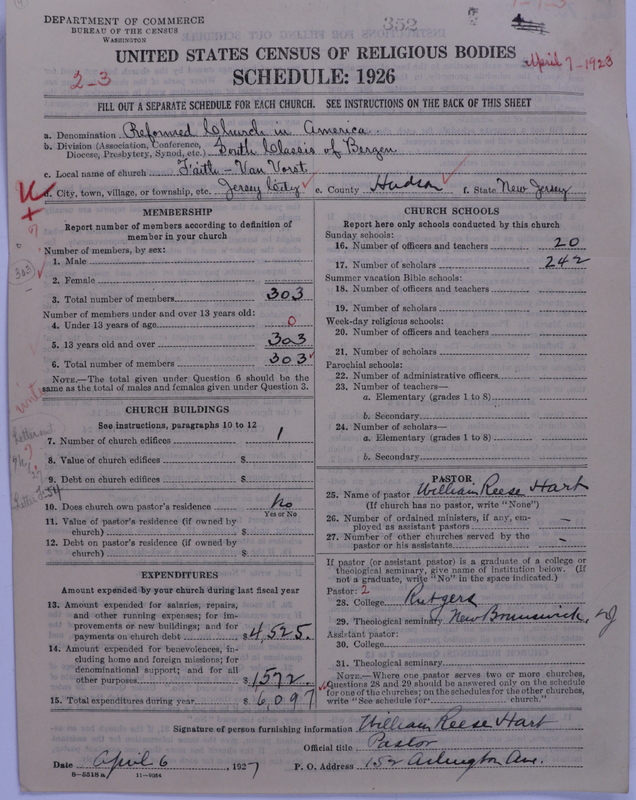 DEPARTMENT OF COMMERCE
BUREAU OF THE CENSUS
WASHINGTON
352
April 7-1923
UNITED STATES CENSUS OF RELIGIOUS BODIES
2-3
SCHEDULE: 1926
FILL OUT A SEPARATE SCHEDULE FOR EACH CHURCH. SEE INSTRUCTIONS ON THE BACK OF THIS SHEET
a. Denomination Reformed Church in America
b. Division (Association, Conference, Diocese, Presbytery, Synod, etc.) South Classis of Bergen
c. Local name of church Faith - Van Vorst
d. City, town, village, or township, etc. Jersey City e. County Hudson f. State New Jersey
MEMBERSHIP
Report number of members according to definition of
member in your church
Number of members, by sex:
1. Male
2. Female
3. Total number of members 303
Number of members under and over 13 years old:
4. Under 13 years of age 0
5. 13 years old and over 303
6. Total number of members 303
NOTE.—The total given under Question 6 should be the
same as the total of males and females given under Question 3.
CHURCH BUILDINGS
See instructions, paragraphs 10 to 12
7. Number of church edifices 1
8. Value of church edifices $
9. Debt on church edifices $
10. Does church own pastor's residence No
Yes or No
11. Value of pastor's residence (if owned by
church) $
12. Debt on pastor's residence (if owned by
church) $
EXPENDITURES
Amount expended by your church during last fiscal year
13. Amount expended for salaries, repairs,
and other running expenses; for im-
provements or new buildings; and for
payments on church debt $4,525.
14. Amount expended for benevolences, in-
cluding home and foreign missions; for
denominational support; and for all
other purposes $1572
15. Total expenditures during year $6097
CHURCH SCHOOLS
Report here only schools conducted by this church
Sunday schools:
16. Number of officers and teachers 20
17. Number of scholars 242
Summer vacation Bible schools:
18. Number of officers and teachers
19. Number of scholars
Week-day religious schools:
20. Number of officers and teachers
21. Number of scholars
Parochial schools:
22. Number of administrative officers
23. Number of teachers—
a. Elementary (grades 1 to 8)
b. Secondary
24. Number of scholars—
a. Elementary (grades 1 to 8)
b. Secondary
PASTOR
25. Name of pastor William Reese Hart
(If church has no pastor, write "None")
26. Number of ordained ministers, if any, em-
ployed as assistant pastors –
27. Number of other churches served by the
pastor or his assistants –
If pastor (or assistant pastor) is a graduate of a college or
theological seminary, give name of institution below. (If
not a graduate, write "No" in the space indicated.)
Pastor: 2
28. College Rutgers
29. Theological seminary New Brunswick, NJ
Assistant pastor:
30. College
31. Theological seminary
NOTE.—Where one pastor serves two or more churches,
Questions 28 and 29 should be answered only on the schedule
for one of the churches; on the schedules for the other churches,
write "See schedule for church."
Signature of person furnishing information William Reese Hart
Official title Pastor
Date April 6, 1927 P. O. Address 152 Arlington Ave.
8-5518a 11-9064